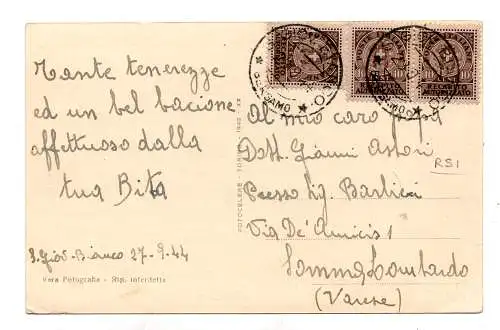 Tante tenerezze
ed un bel bacione
affettuoso dalla
tua Bita
S. Giov. Bianco 27-9-44
Vera Fotografia - Rip. interdetta
FOTOCELERE - TORINO
Al mio caro papà
Dott. Gianni Astori
Presso Sig. Barbieri
Via De' Amicis 1
Somma Lombardo
(Varese)
RSI
POSTE ITALIANE
BERGAMO
10
10
10